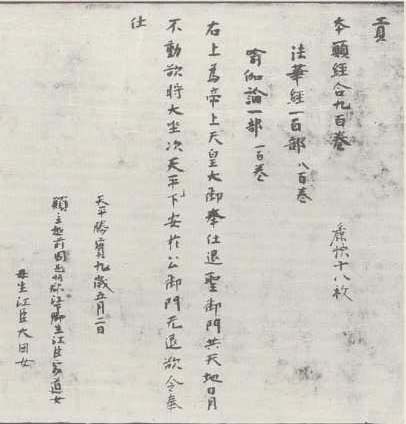 貢
本願経合九百巻
帙十八枚
法華経一百部 八百巻
瑜伽論一部 一百巻
右上為帝上天皇大御奉仕退聖御門共天地日月
不動欲将大坐次天平下安於公御門无退欲令奉
仕
天平勝寶九歳五月二日
願主越前國江下郷生江臣家道女
母生江臣大田女